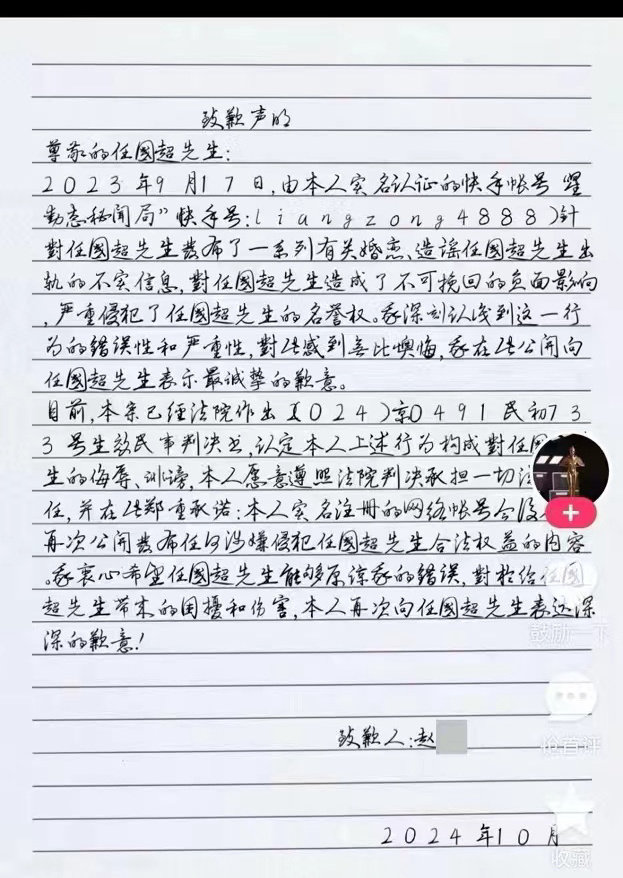 致歉声明
尊敬的任國超先生：
2023年9月17日，由本人实名认证的快手帐号"星
動态秘聞局"快手号：liangzong4888）針
對任國超先生發布了一系列有关婚恋、造謡任國超先生出
軌的不实信息，對任國超先生造成了不可挽回的负面影响
，严重侵犯了任國超先生的名誉权。我深刻认识到这一行
为的錯误性和严重性，對此感到无比懊悔，我在此公開向
任國超先生表示最诚摯的歉意。
目前，本案已經法院作出（2024）京0491民初73
3号生效民事判决书，认定本人上述行为构成對任國
生的侮辱、诽谤，本人愿意遵照法院判决承担一切法
任，并在此郑重承诺：本人实名注册的网络帐号会
再次公開發布任何涉嫌侵犯任國超先生合法权益的内容
。我衷心希望任國超先生能够原谅我的錯误，對於给任國
超先生带来的困擾和伤害，本人再次向任國超先生表达深
深的歉意！
致歉人：赵
2024年10月
鼓励一下
抢首评
收藏